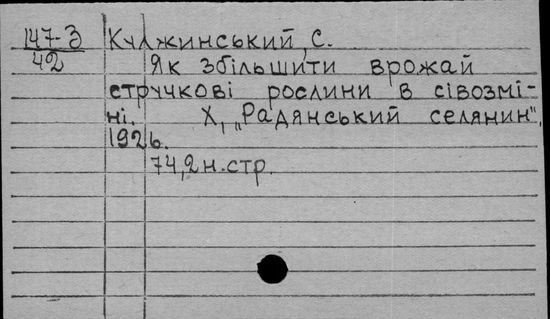 147-3
42
Кулжинський, С.
Як збільшити врожай
стручкові рослини в сівозмі-
ні. Х, „Радянський селянин",
1926.
74,2 н.стр.